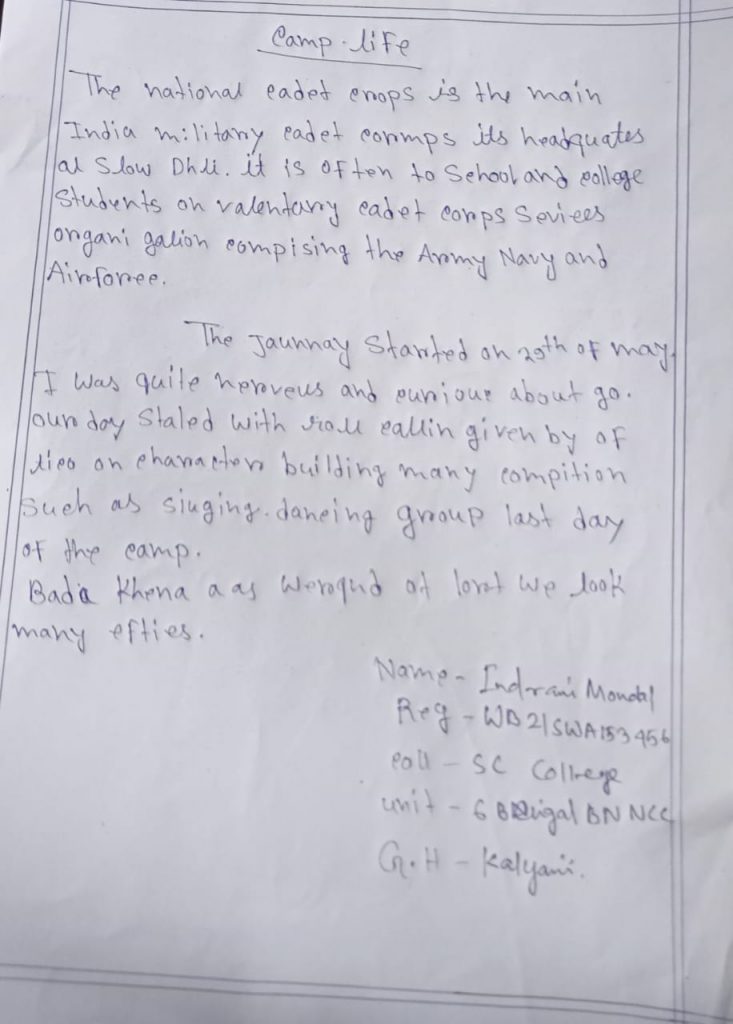 Camp life
The national cadet crops is the main
India military cadet cormps its headquates
at Slow Dhli. it is often to School and college
Students on valentarry cadet corps Seviees
organi gation compising the Army Navy and
Airforree.
The Jaunnay Started on 29th of may
I was quite nerveus and curious about go.
our day Staled with roll callin given by of
on charracter building many compition
Such as siuging. danceing group last day
of the camp.
Bada Khena aas at we look
many efties.
Name - Indrani Mondal
Reg - WB21SWA153456
coll - SC College
unit - 6 Bengal BN NCC
G.H - Kalyani.